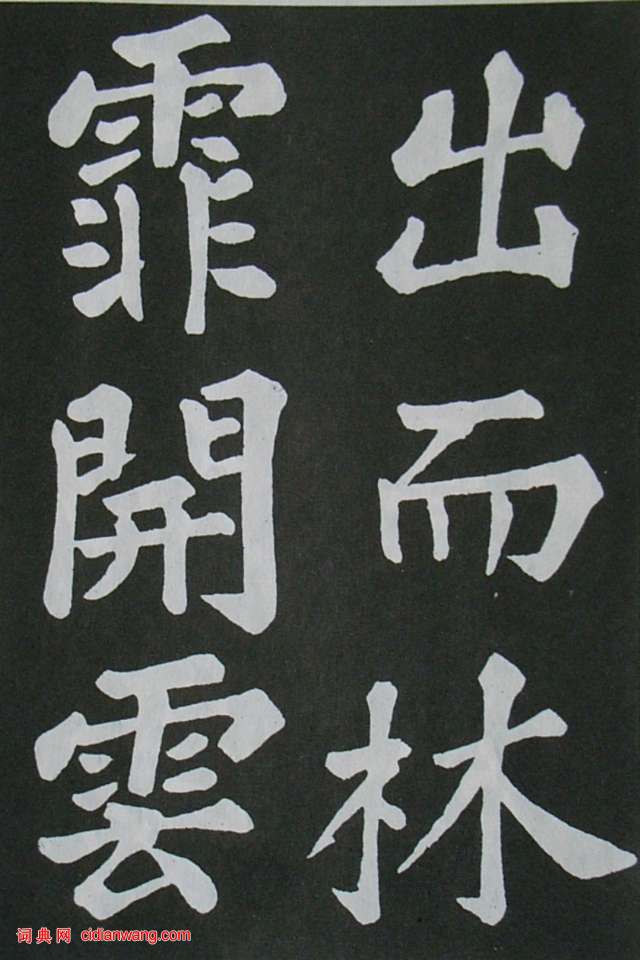 出而林
霏開雲
词典网 cidianwang.com